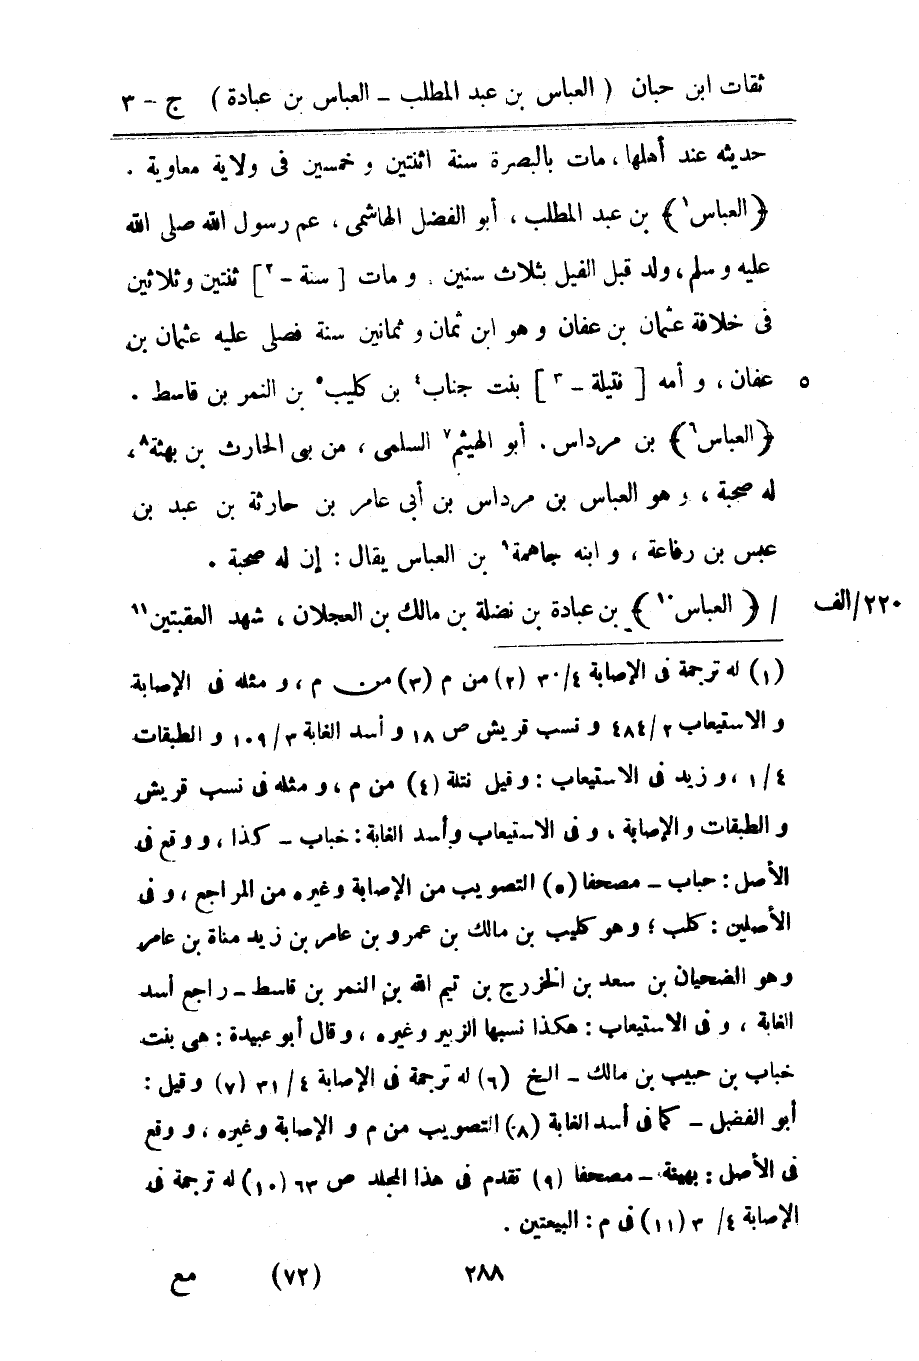 ثقات ابن حبان ( العباس بن عبد المطلب - العباس بن عبادة ) ج - ٣
حديثه عند أهلها ، مات بالبصرة سنة اثنتين و خمسين فى ولاية معاوية .
﴿ العباس١ ﴾ بن عبد المطلب ، أبو الفضل الهاشمى ، عم رسول الله صلى الله
عليه و سلم ، ولد قبل الفيل بثلاث سنين . و مات [ سنة - ٢ ] ثنتين و ثلاثين
فى خلافة عثمان بن عفان و هو ابن ثمان و ثمانين سنة فصلى عليه عثمان بن
عفان ، و أمه [ نتيلة - ٣ ] بنت جناب٤ بن كليب٥ بن النمر بن قاسط . ٥
﴿ العباس٦ ﴾ بن مرداس . أبو الهيثم٧ السلمى ، من بنى الحارث بن بهثة٨ ،
له صحبة ، و هو العباس بن مرداس بن أبى عامر بن حارثة بن عبد بن
عبس بن رفاعة ، و ابنه جاهمة٩ بن العباس يقال : إن له صحبة .
٢٢٠/الف / ﴿ العباس١٠ ﴾ بن عبادة بن نضلة بن مالك بن العجلان ، شهد العقبتين١١
(١) له ترجمة فى الإصابة ٤/٣٠ (٢) من م (٣) من م ، و مثله فى الإصابة
و الاستيعاب ٢/٤٨٤ و نسب قريش ص ١٨ و أسد الغابة ٣/١٠٩ و الطبقات
٤/ ١ ، و زيد فى الاستيعاب : و قيل نتلة (٤) من م ، و مثله فى نسب قريش
و الطبقات و الإصابة ، و فى الاستيعاب و أسد الغابة : خباب - كذا ، و وقع فى
الأصل : حباب - مصحفا (٥) التصويب من الإصابة و غيره من المراجع ، و فى
الأصلين : كلب ؛ و هو كليب بن مالك بن عمرو بن عامر بن زيد مناة بن عامر
و هو الضحيان بن سعد بن الخزرج بن تيم الله بن النمر بن قاسط - راجع أسد
الغابة ، و فى الاستيعاب : هكذا نسبها الزبير و غيره ، و قال أبو عبيدة : هى بنت
خباب بن حبيب بن مالك - الخ (٦) له ترجمة فى الإصابة ٤/ ٣١ (٧) و قيل :
أبو الفضل - كما فى أسد الغابة (٨) التصويب من م و الإصابة و غيره ، و وقع
فى الأصل : بهيئة - مصحفا (٩) تقدم فى هذا المجلد ص ٦٣ (١٠) له ترجمة فى
الإصابة ٤/ ٣ (١١) فى م : البيعتين .
٢٨٨ (٧٢) مع